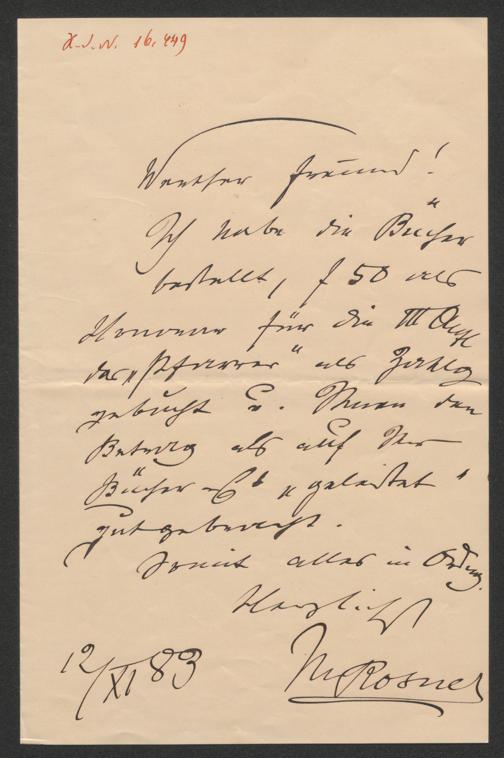 H.I.N. 16.449
Werther Freund!
Ich habe die Bücher
bestellt, f 50 als
Honorar für die III Aufl
des „Pfarrer" als Zahlg
gebucht u. Ihnen den
Betrag als auf Ihr
Bücher „geleistet"
gutgebracht.
Somit alles in Ordng.
Herzlichst
12/XI 83
M Rosner